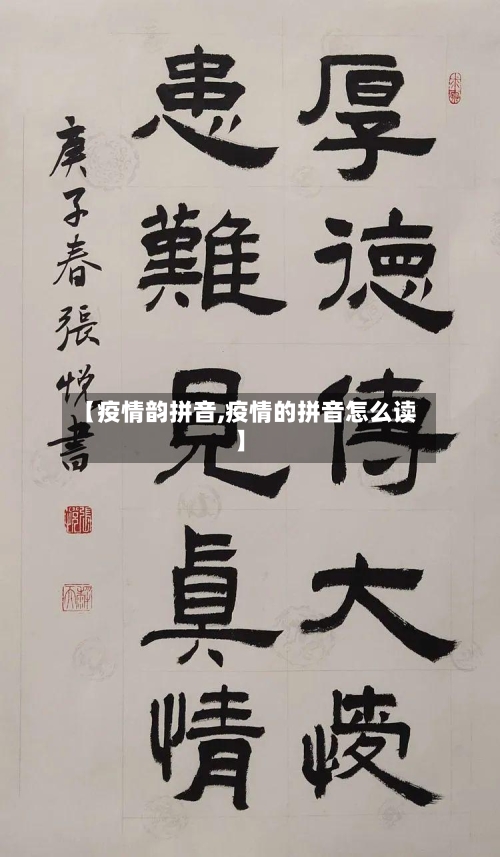 厚德傳大愛
患難見真情
庚子春張悅書
【疫情韵拼音,疫情的拼音怎么读
】